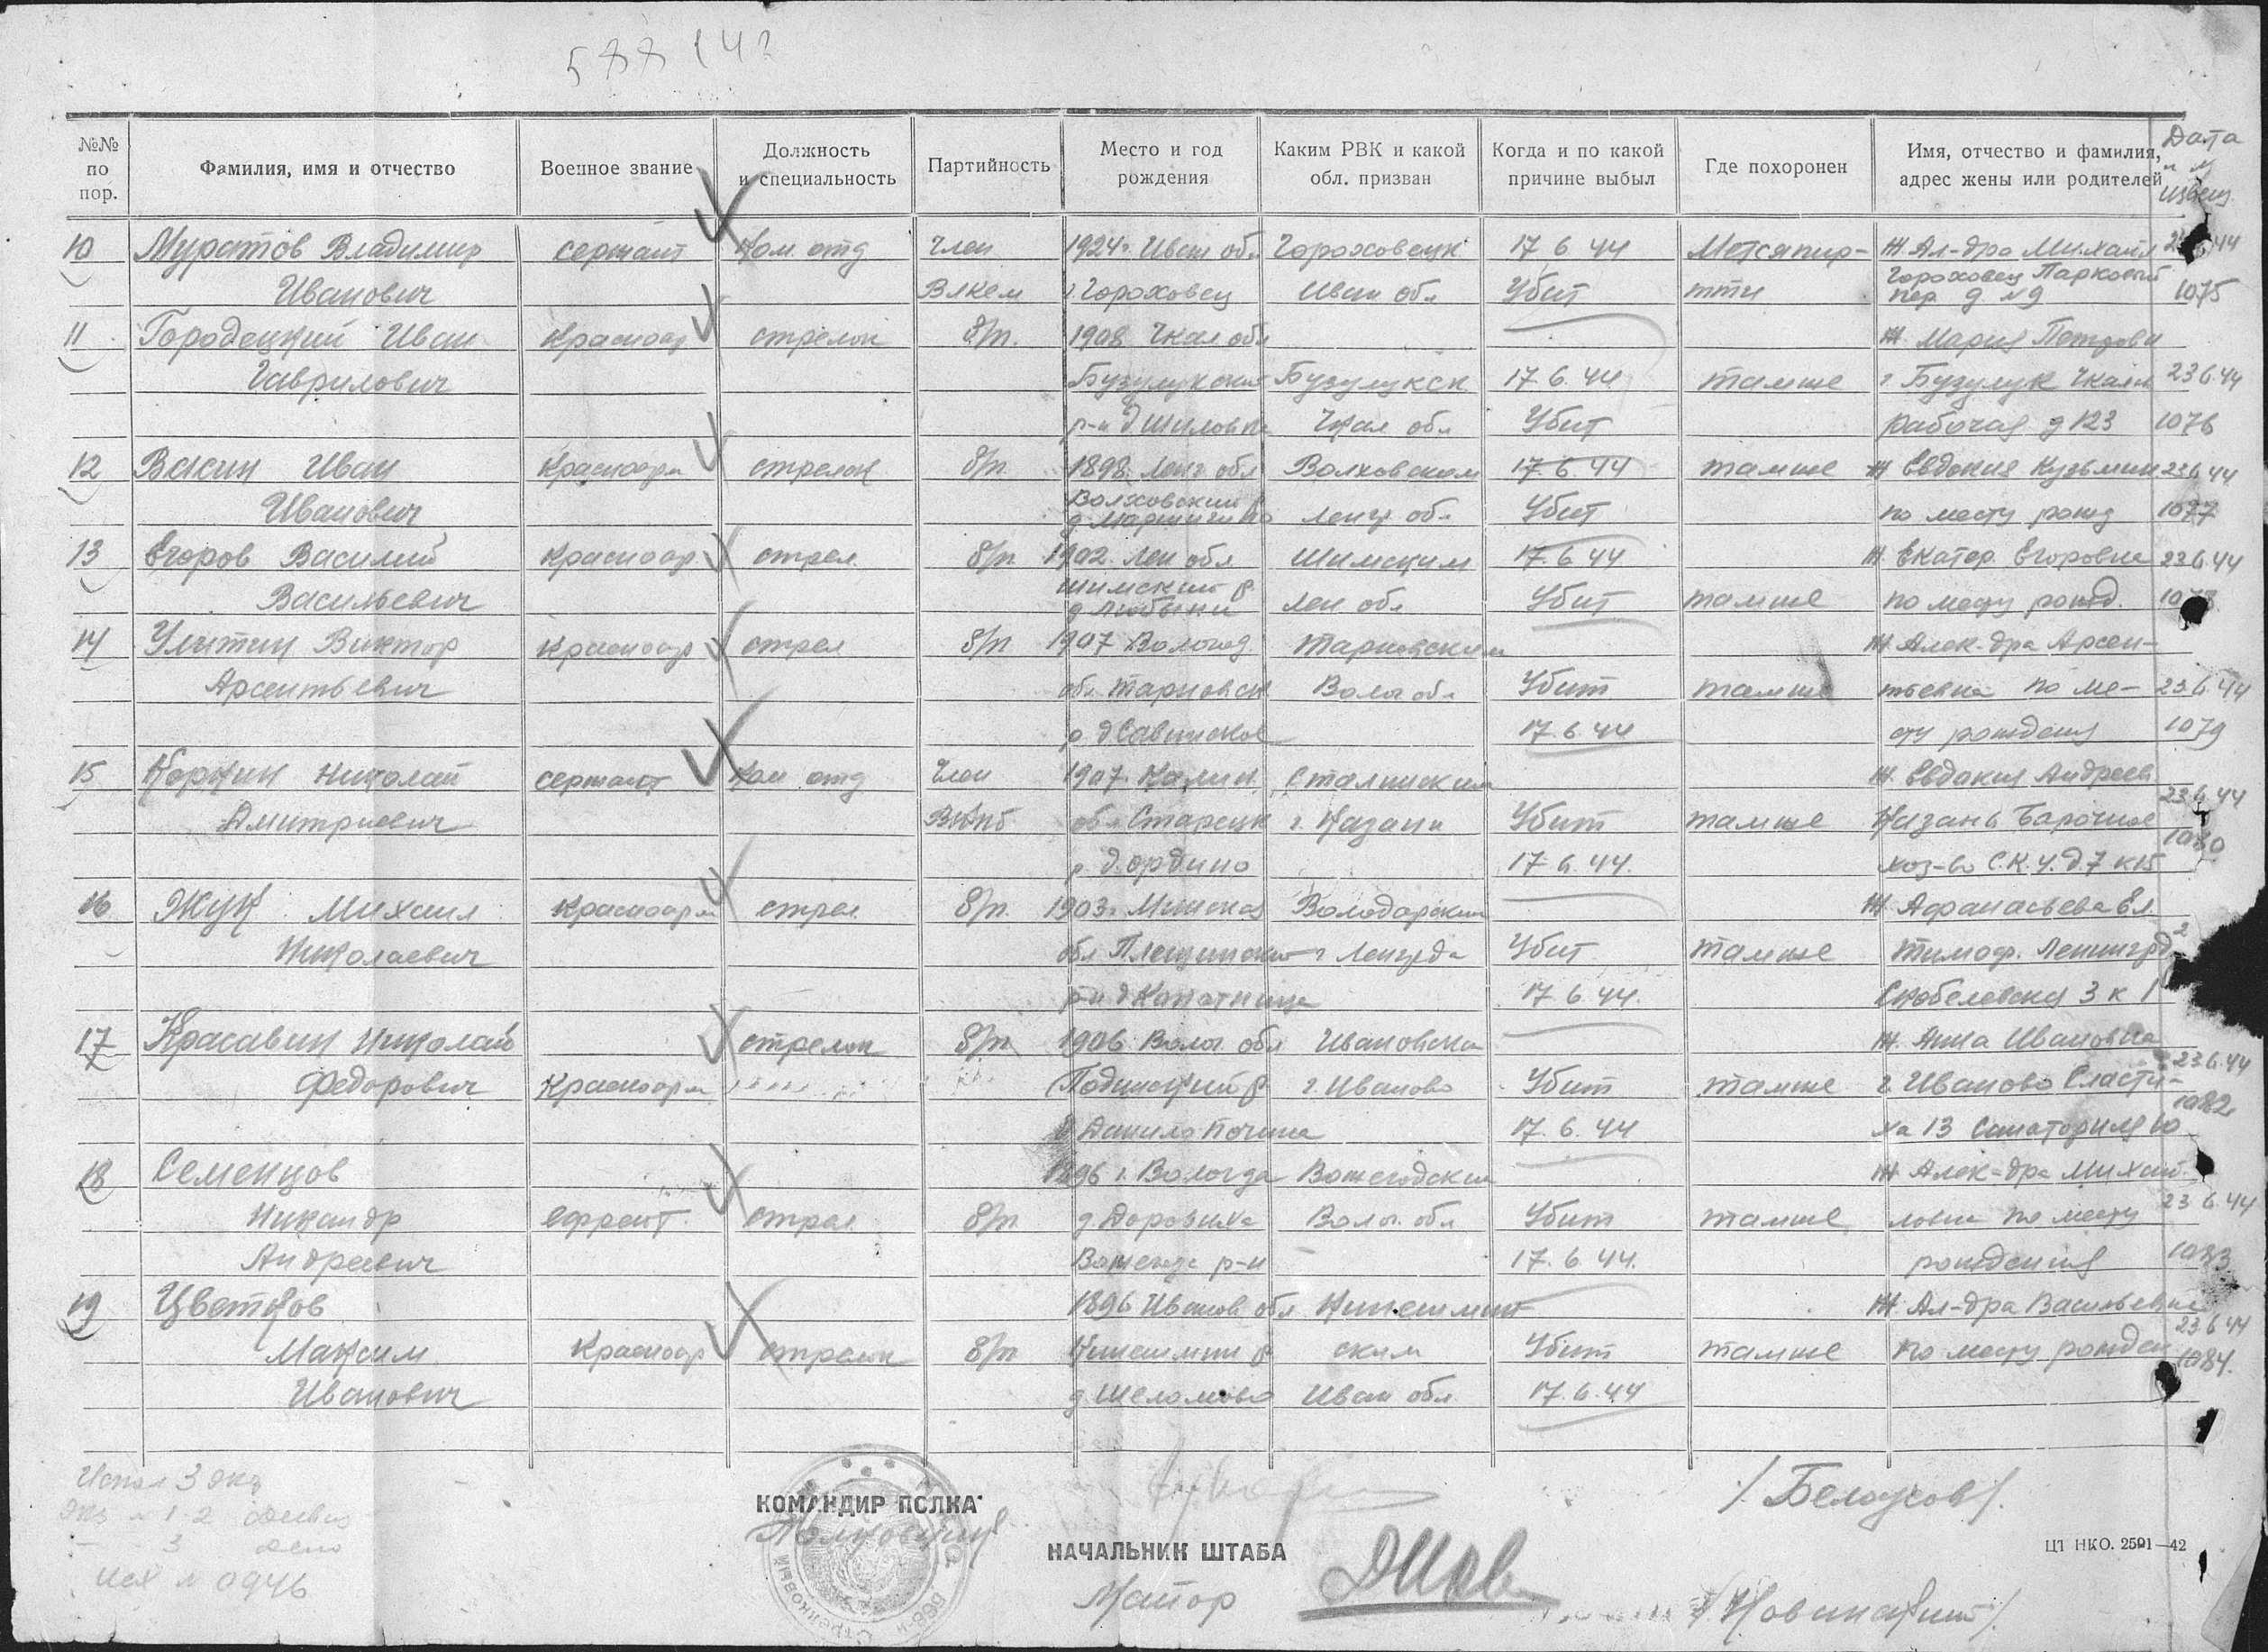 588142
№№ по пор. Фамилия, имя и отчество Военное звание Должность и специальность Партийность Место и год рождения Каким РВК и какой обл. призван Когда и по какой причине выбыл Где похоронен Имя, отчество и фамилия, адрес жены или родителей Дата и № извещ.
10 Муратов Владимир сержант Ком. отд Член 1924 г. Иван обл Гороховецк 17 6 44 Метсяпир- Ж. Ал-дра Михайл
Иванович Влксм г Гороховец Иван обл Убит тти Гороховец Парковый пер д №9 1075
11 Городецкий Иван Красноар стрелок б/п. 1908 Чкал обл Ж. Мария Петровн
Гаврилович Бузулукский Бузулукск 17.6.44 тамже г. Бузулук Чкал 23 6.44
р-н д Шиловка Чкал обл Убит Рабочая д 123 1076
12 Вакин Иван Красноарм стрелок б/п. 1898 Лен. обл Волховском 17.6.44 тамже Ж Евдокия Кузьмин 23.6.44
Иванович Волховский р Ленгр. обл. Убит по месту рожд 1077
13 Егоров Василий Красноар. стрел. б/п 1902. Лен обл Шимским 17.6.44 Ж. Екатер. Егоровна 23.6.44
Васильевич Шимский р д Любыни Лен обл Убит тамже по месту рожд. 1078
14 Улитин Виктор Красноар стрел б/п 1907 Вологод Тарновским Ж. Алек-дра Арсен-
Арсентьевич обл. Тарновск Волог обл Убит тамже тьевна по ме- 23.6.44
р д Савинское 17.6.44 сту рождения 1079
15 Коркин Николай сержант Ком отд Член 1907. Калин. Сталинским Ж. Евдокия Андреев.
Дмитриевич ВКПб обл Старецк г. Казани Убит тамже Казань Барочное 23.6.44
р. д. Ордино 17.6.44. хоз-во С.К.У. д. 7 к 15 1080
16 Жук Михаил Красноарм стрел б/п. 1903 г. Минской Володарским Ж Афанасьева Ел.
Николаевич обл Плещинский г Ленгрда Убит тамже Тимоф. Ленинград
р-н д 17.6.44. Скобелевская 3 к 1
17 Красавин Николай стрелок б/п 1906 Волог. обл Ивановским Ж. Анна Ивановна
Федорович Красноарм р г. Иваново Убит тамже г. Иваново Сласти- 23.6.44
д Данило Почина 17.6.44 ха 13 Санатория 10 1082
18 Семенцов 1896 г. Вологда Вожегодским Ж Алек-дра Михай-
Никандр ефрейт. стрел. б/п д. Доровиха Волог. обл Убит тамже ловна по месту 23 6 44
Андреевич Вожегод р-н 17.6.44. рождения 1083
19 Цветков 1896 Иванов обл Кинешмин- Ж Ал-дра Васильевна
Максим Красноар стрелок б/п Кинешмин р ским Убит тамже по месту рожден 23 6 44
Иванович д. Шеломово Иван обл. 17.6.44 1084.
Испол 3 экз
Экз № 1-2
- - 3 дело
Исх № 0946
КОМАНДИР ПОЛКА
Полковник
/Белоусов/.
НАЧАЛЬНИК ШТАБА
Майор
ЦТ НКО. 2501—42